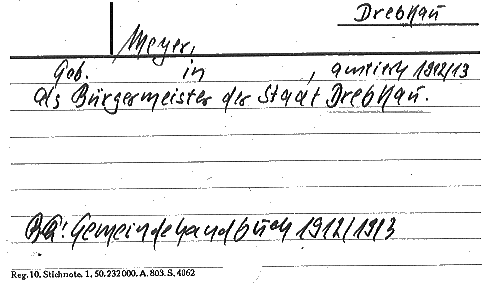 Drebkau
Meyer,
Geb. in , amtiert 1912/13
als Bürgermeister der Stadt Drebkau.
BQ: Gemeindehandbuch 1912/1913
Reg. 10. Stichnote. 1, 50. 232 000. A. 803. S. 4062